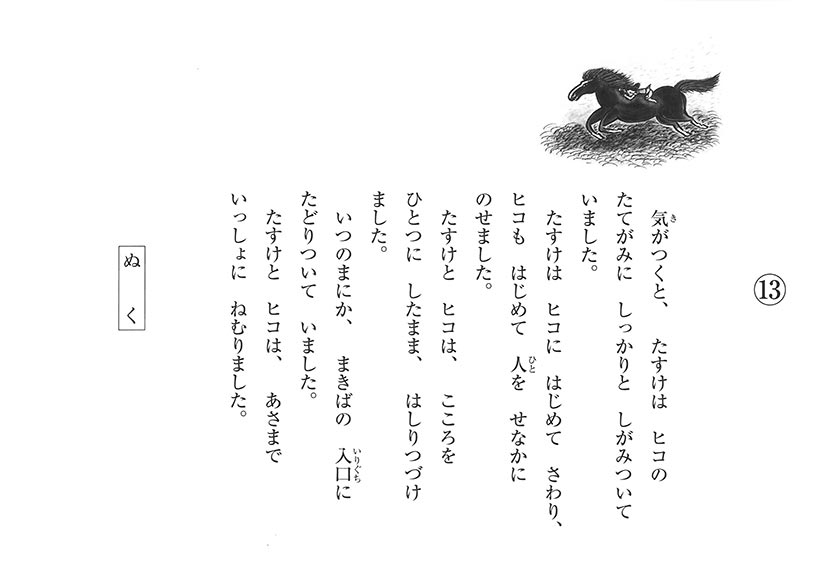 ⑬
気がつくと、 たすけは ヒコの
たてがみに しっかりと しがみついて
いました。
たすけは ヒコに はじめて さわり、
ヒコも はじめて 人を せなかに
のせました。
たすけと ヒコは、 こころを
ひとつに したまま、 はしりつづけ
ました。
いつのまにか、 まきばの 入口に
たどりついて いました。
たすけと ヒコは、 あさまで
いっしょに ねむりました。
ぬく